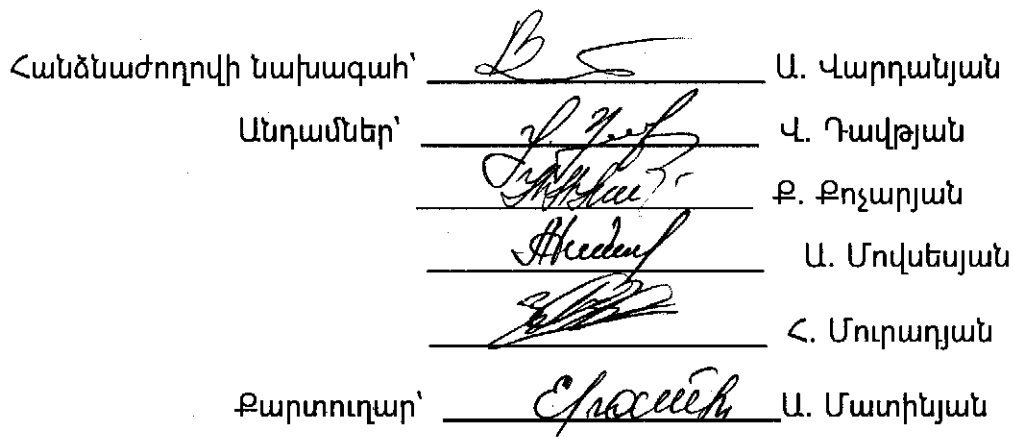 Հանձնաժողովի նախագահ՝ Ա. Վարդանյան
Անդամներ՝ Վ. Դավթյան
Ք. Քոչարյան
Ա. Մովսեսյան
Հ. Մուրադյան
Քարտուղար՝ Ա. Մատինյան